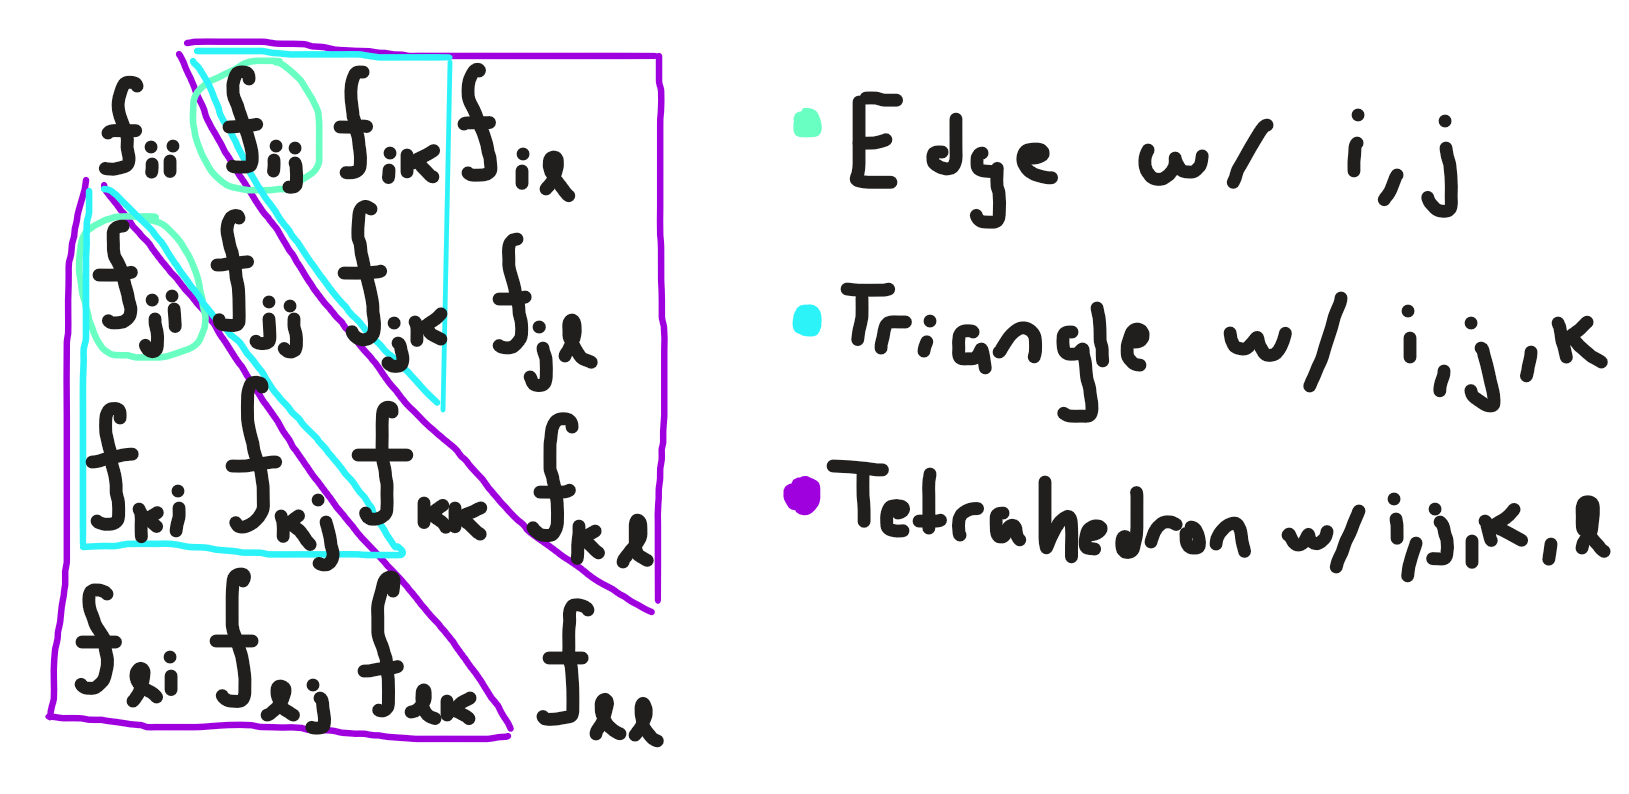 f_ii f_ij f_ik f_il
f_ji f_jj f_jk f_jl
f_ki f_kj f_kk f_kl
f_li f_lj f_lk f_ll
Edge w/ i,j
Triangle w/ i,j,k
Tetrahedron w/ i,j,k,l